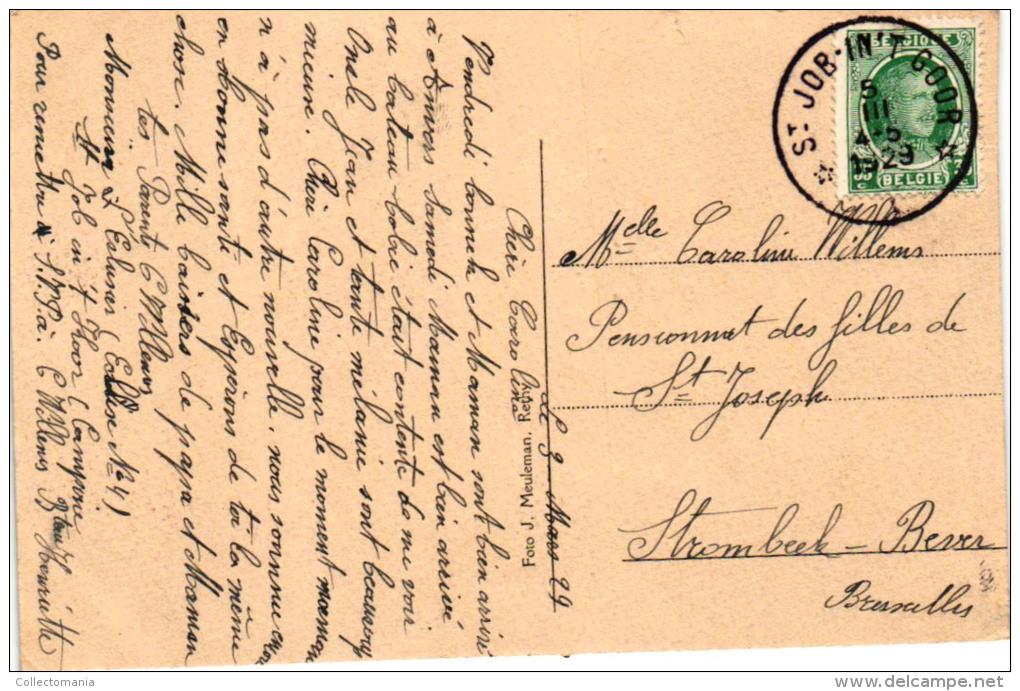 Chère Caroline
le 3 Mars 29
Vendredi bonne et Maman sont bien arrivé
à Anvers Samedi Maman est bien arrivé
au bateau bobie était contente de me voir
Oncle Jean et tante mélanie sont beaucoup
mieux. Chère Caroline pour le moment maman
n'a pas d'autre nouvelle. nous sommes
en bonne santé et Espérons de toi la même
chose. Mille baisers de papa et Maman
tes Parents C Willems
Monsieur
St Job in't Goor (Campine
Pour remettre S.V.P. à. C Willems
Foto J. Meuleman, Rethy
ST JOB-IN'T GOOR
5
III
1929
BELGIQUE
BELGIE
Melle Caroline Willems
Pensionnat des filles de
St Joseph
Strombeek - Bever
Bruxelles
Collectomania
www.delcampe.net